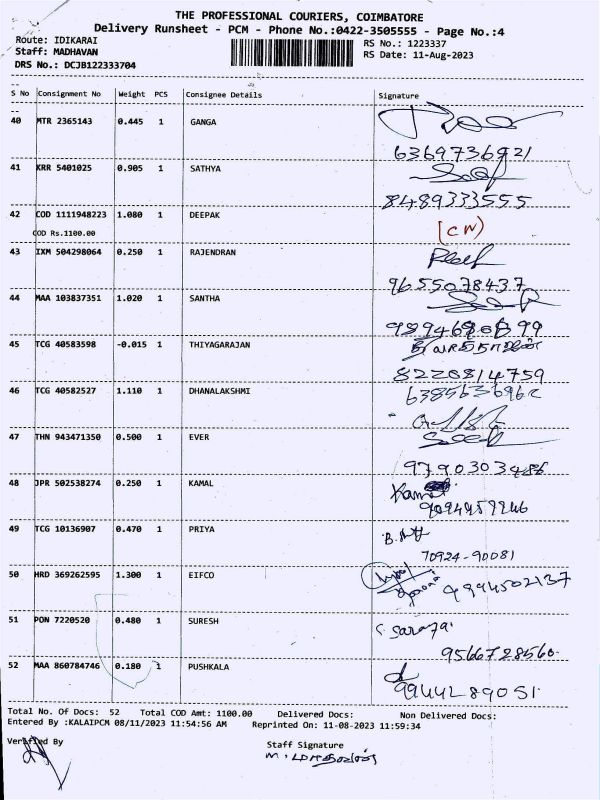 THE PROFESSIONAL COURIERS, COIMBATORE
Delivery Runsheet - PCM - Phone No.:0422-3505555 - Page No.:4
Route: IDIKARAI RS No.: 1223337
Staff: MADHAVAN RS Date: 11-Aug-2023
DRS No.: DCJB122333704
S No Consignment No Weight PCS Consignee Details Signature
40 MTR 2365143 0.445 1 GANGA
6369736921
41 KRR 5401025 0.905 1 SATHYA
8489333555
42 COD 1111948223 1.080 1 DEEPAK
COD Rs.1100.00 (CN)
43 IXM 504298064 0.250 1 RAJENDRAN
9655078437
44 MAA 103837351 1.020 1 SANTHA
45 TCG 40583598 -0.015 1 THIYAGARAJAN
8220814759
46 TCG 40582527 1.110 1 DHANALAKSHMI
47 THN 943471350 0.500 1 EVER
48 JPR 502538274 0.250 1 KAMAL Kamal
49 TCG 10136907 0.470 1 PRIYA
70924-90081
50 HRD 369262595 1.300 1 EIFCO 9994502137
51 PON 7220520 0.480 1 SURESH
9566728560
52 MAA 860784746 0.180 1 PUSHKALA
9944289051
Total No. Of Docs: 52 Total COD Amt: 1100.00 Delivered Docs: Non Delivered Docs:
Entered By :KALAIPCM 08/11/2023 11:54:56 AM Reprinted On: 11-08-2023 11:59:34
Verified By Staff Signature